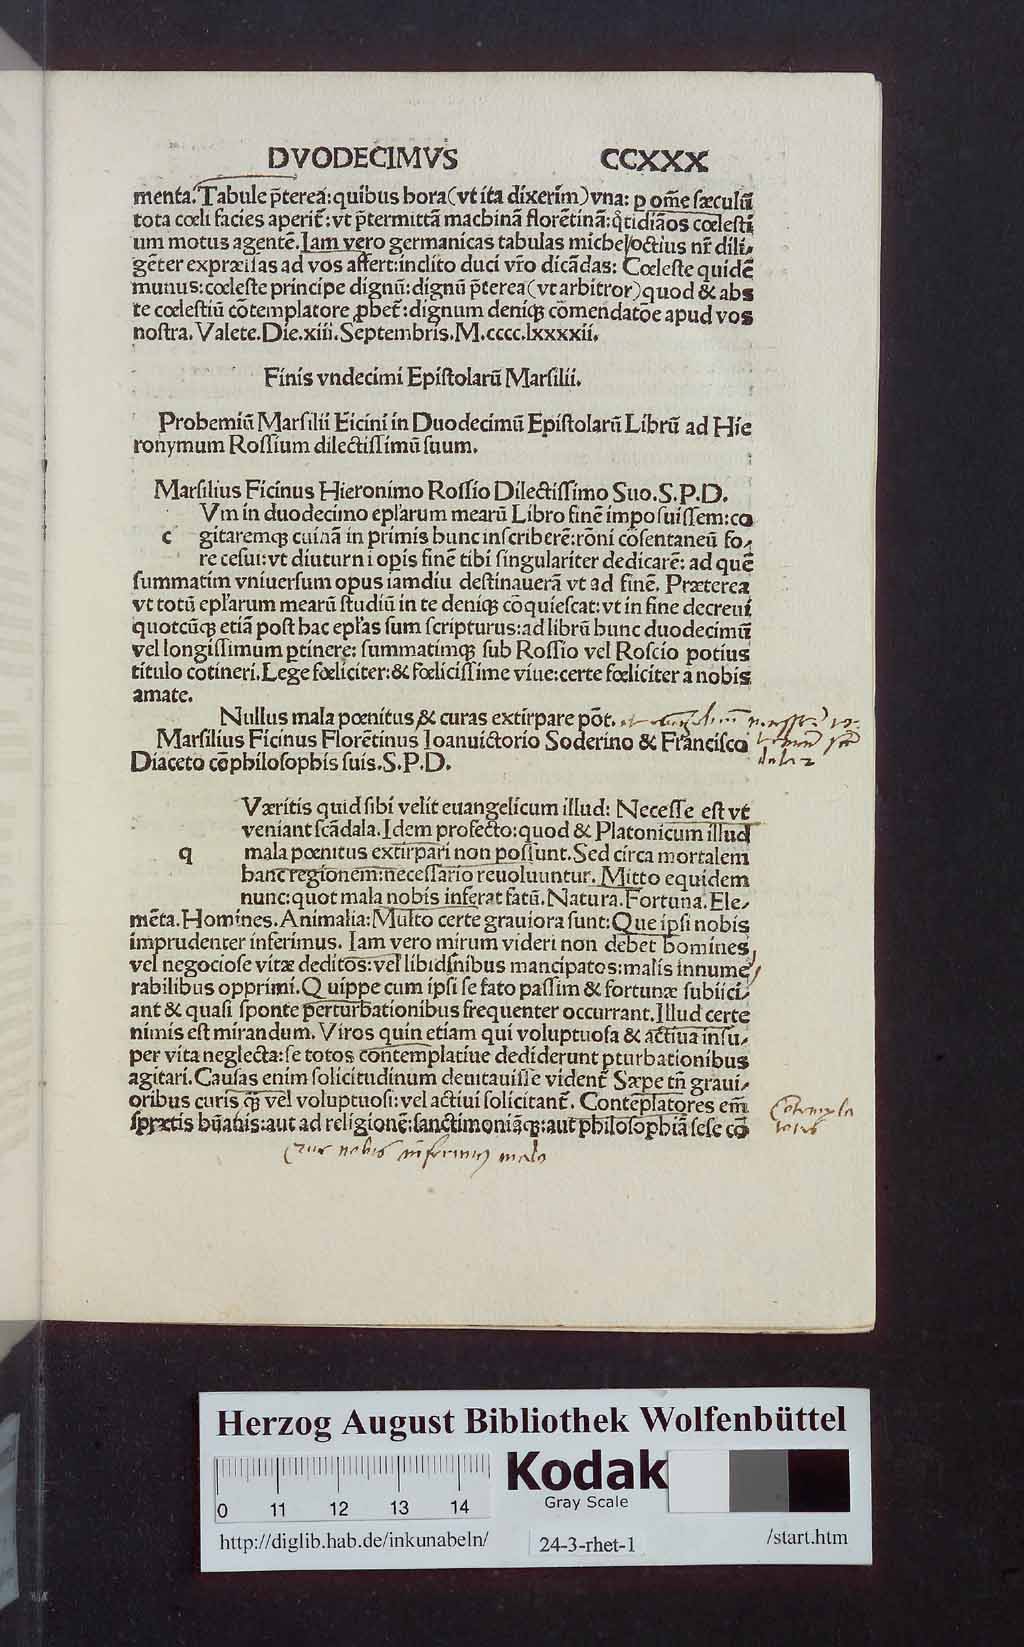 DVODECIMVS CCXXX
menta. Tabule p̄terea: quibus hora (vt ita dixerīm) vna: p om̄e sæculū
tota cœli facies aperit̄: vt p̄termittā machinā florētinā: q̊tidiāos cœlesti
um motus agentē. Iam vero germanicas tabulas michel octius nr̄ dili-
gēter expræssas ad vos affert: inclito duci vr̄o dicādas: Cœleste quidē
munus: cœleste principe dignū: dignū p̄terea (vt arbitror) quod & abs
te cœlestiū cōtemplatore ꝓbet̄: dignum deniqꝫ cōmendatōe apud vos
nostra. Valete. Die. xiii. Septembris. M. cccc. lxxxxii.
Finis vndecimi Epistolarū Marsilii.
Prohemiū Marsilii Ficini in Duodecimū Epistolarū Librū ad Hie
ronymum Rossium dilectissimū suum.
Marsilius Ficinus Hieronimo Rossio Dilectissimo Suo. S. P. D.
Vm in duodecimo epl'arum mearū Libro finē imposuissem: co
c gitaremqꝫ cuinā in primis hunc inscriberē: rōni cōsentaneū fo-
re cesui: vt diuturni opis finē tibi singulariter dedicarē: ad quē
summatim vniuersum opus iamdiu destinauerā vt ad finē. Præterea
vt totū epl'arum mearū studiū in te deniqꝫ cōquiescat: vt in fine decreui
quotcūqꝫ etiā post hac epl'as sum scripturus: ad librū hunc duodecimū
vel longissimum ꝑtinere: summatimqꝫ sub Rossio vel Roscio potius
titulo cotineri. Lege fœliciter: & fœlicissime viue: certe fœliciter a nobis
amate.
Nullus mala pœnitus & curas extirpare pōt.
Marsilius Ficinus Florētinus Ioanuictorio Soderino & Francisco
Diaceto cōphilosophis suis. S. P. D.
Væritis quid sibi velit euangelicum illud: Necesse est vt
veniant scādala. Idem profecto: quod & Platonicum illud
q mala pœnitus extirpari non possunt. Sed circa mortalem
hanc regionem: necessario reuoluuntur. Mitto equidem
nunc: quot mala nobis inferat fatū. Natura. Fortuna. Ele-
mēta. Homines. Animalia: Multo certe grauiora sunt: Que ipsi nobis
imprudenter inferimus. Iam vero mirum videri non debet homines,
vel negociose vitæ deditos: vel libidinibus mancipatos: malis innume
rabilibus opprimi. Quippe cum ipsi se fato passim & fortunæ subiici-
ant & quasi sponte perturbationibus frequenter occurrant. Illud certe
nimis est mirandum. Viros quin etiam qui voluptuosa & actiua insu-
per vita neglecta: se totos contemplatiue dediderunt ꝑturbationibus
agitari. Causas enim solicitudinum deuitauisse vident̄ Sæpe tn̄ graui-
oribus curis qꝫ vel voluptuosi: vel actiui solicitant̄. Contēplatores em̄
sprætis hūanis: aut ad religionē: sanctimoniāqꝫ: aut philosophiā sese cō
Contempla
tores
Que nobis inferimus mala
Herzog August Bibliothek Wolfenbüttel
0 11 12 13 14
Kodak
Gray Scale
http://diglib.hab.de/inkunabeln/ 24-3-rhet-1 /start.htm